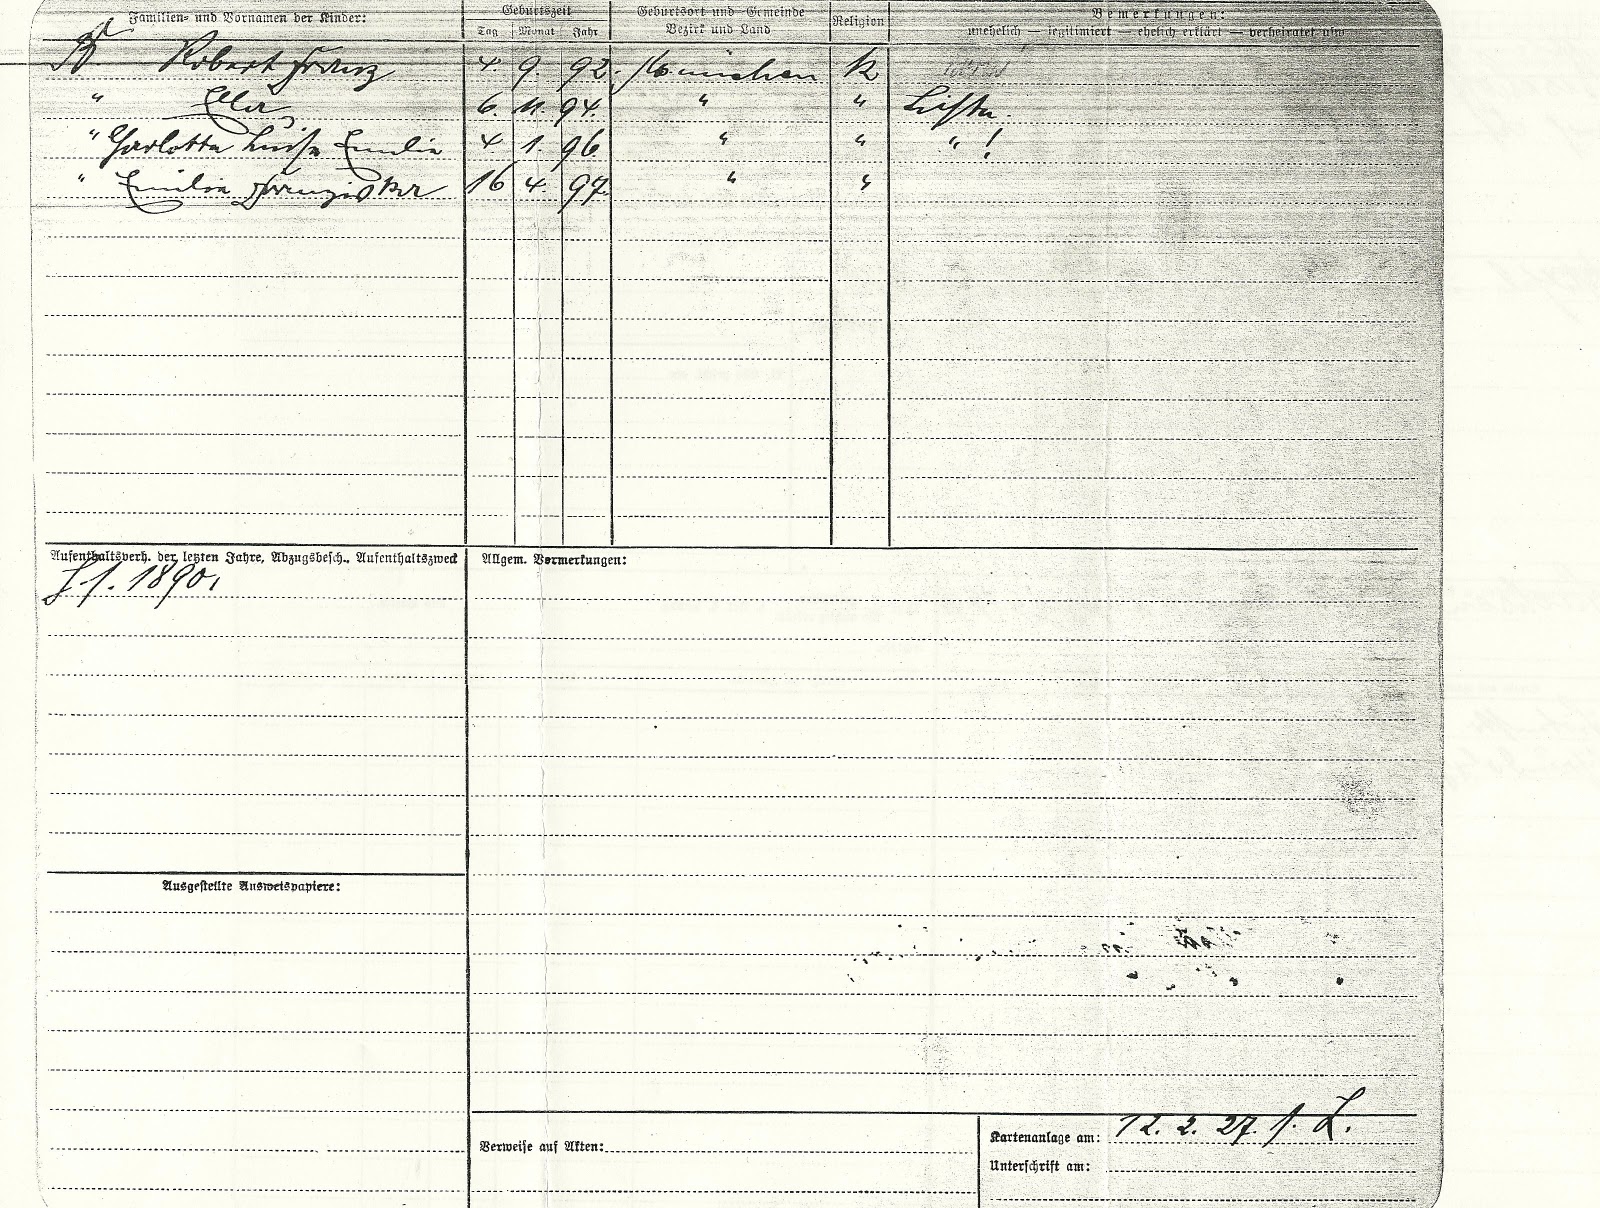 Familien- und Vornamen der Kinder:
Geburtszeit
Tag Monat Jahr
Geburtsort und Gemeinde
Bezirk und Land
Religion
Bemerkungen:
unehelich — legitimiert — ehelich erklärt — verheiratet usw
Robert Franz 4. 9. 92. München K
" Ella 6. 11. 94. " "
" Charlotte Luise Emilie 4 1. 96. " " " !
" Emilie Franziska 16 4. 97. " "
Aufenthaltsverh. der letzten Jahre, Abzugsbesch., Aufenthaltszweck
1890.
Allgem. Vormerkungen:
Ausgestellte Ausweispapiere:
Verweise auf Akten:
Kartenanlage am: 12. 2. 27.
Unterschrift am: